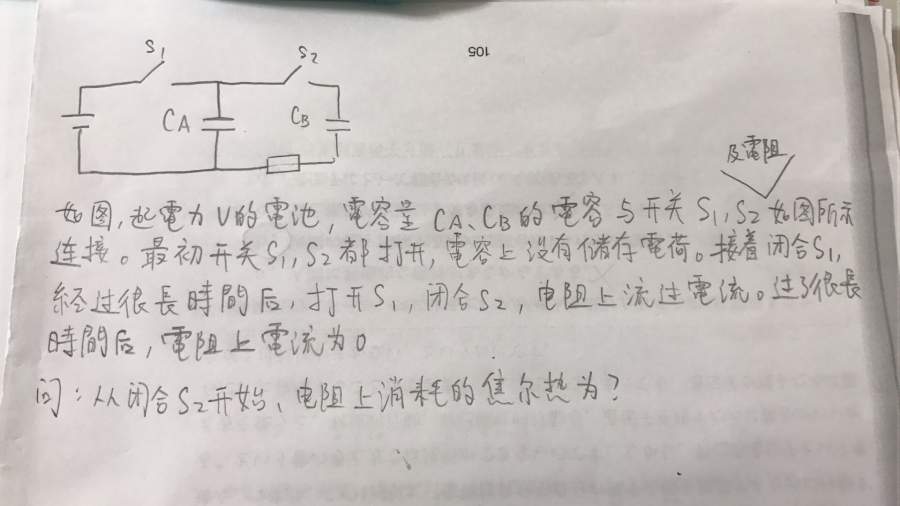 S1
S2
105
CA
CB
及電阻
如图,起電力 V的電池,電容量 CA、CB的電容与开关 S1,S2 如图所示
连接。最初开关S1,S2都打开,電容上没有储存電荷。接着闭合S1,
経过很長時間后,打开S1,闭合S2,电阻上流过电流。过了很長
時間后,電阻上電流为0
问:从闭合S2开始、电阻上消耗的焦尔热为?